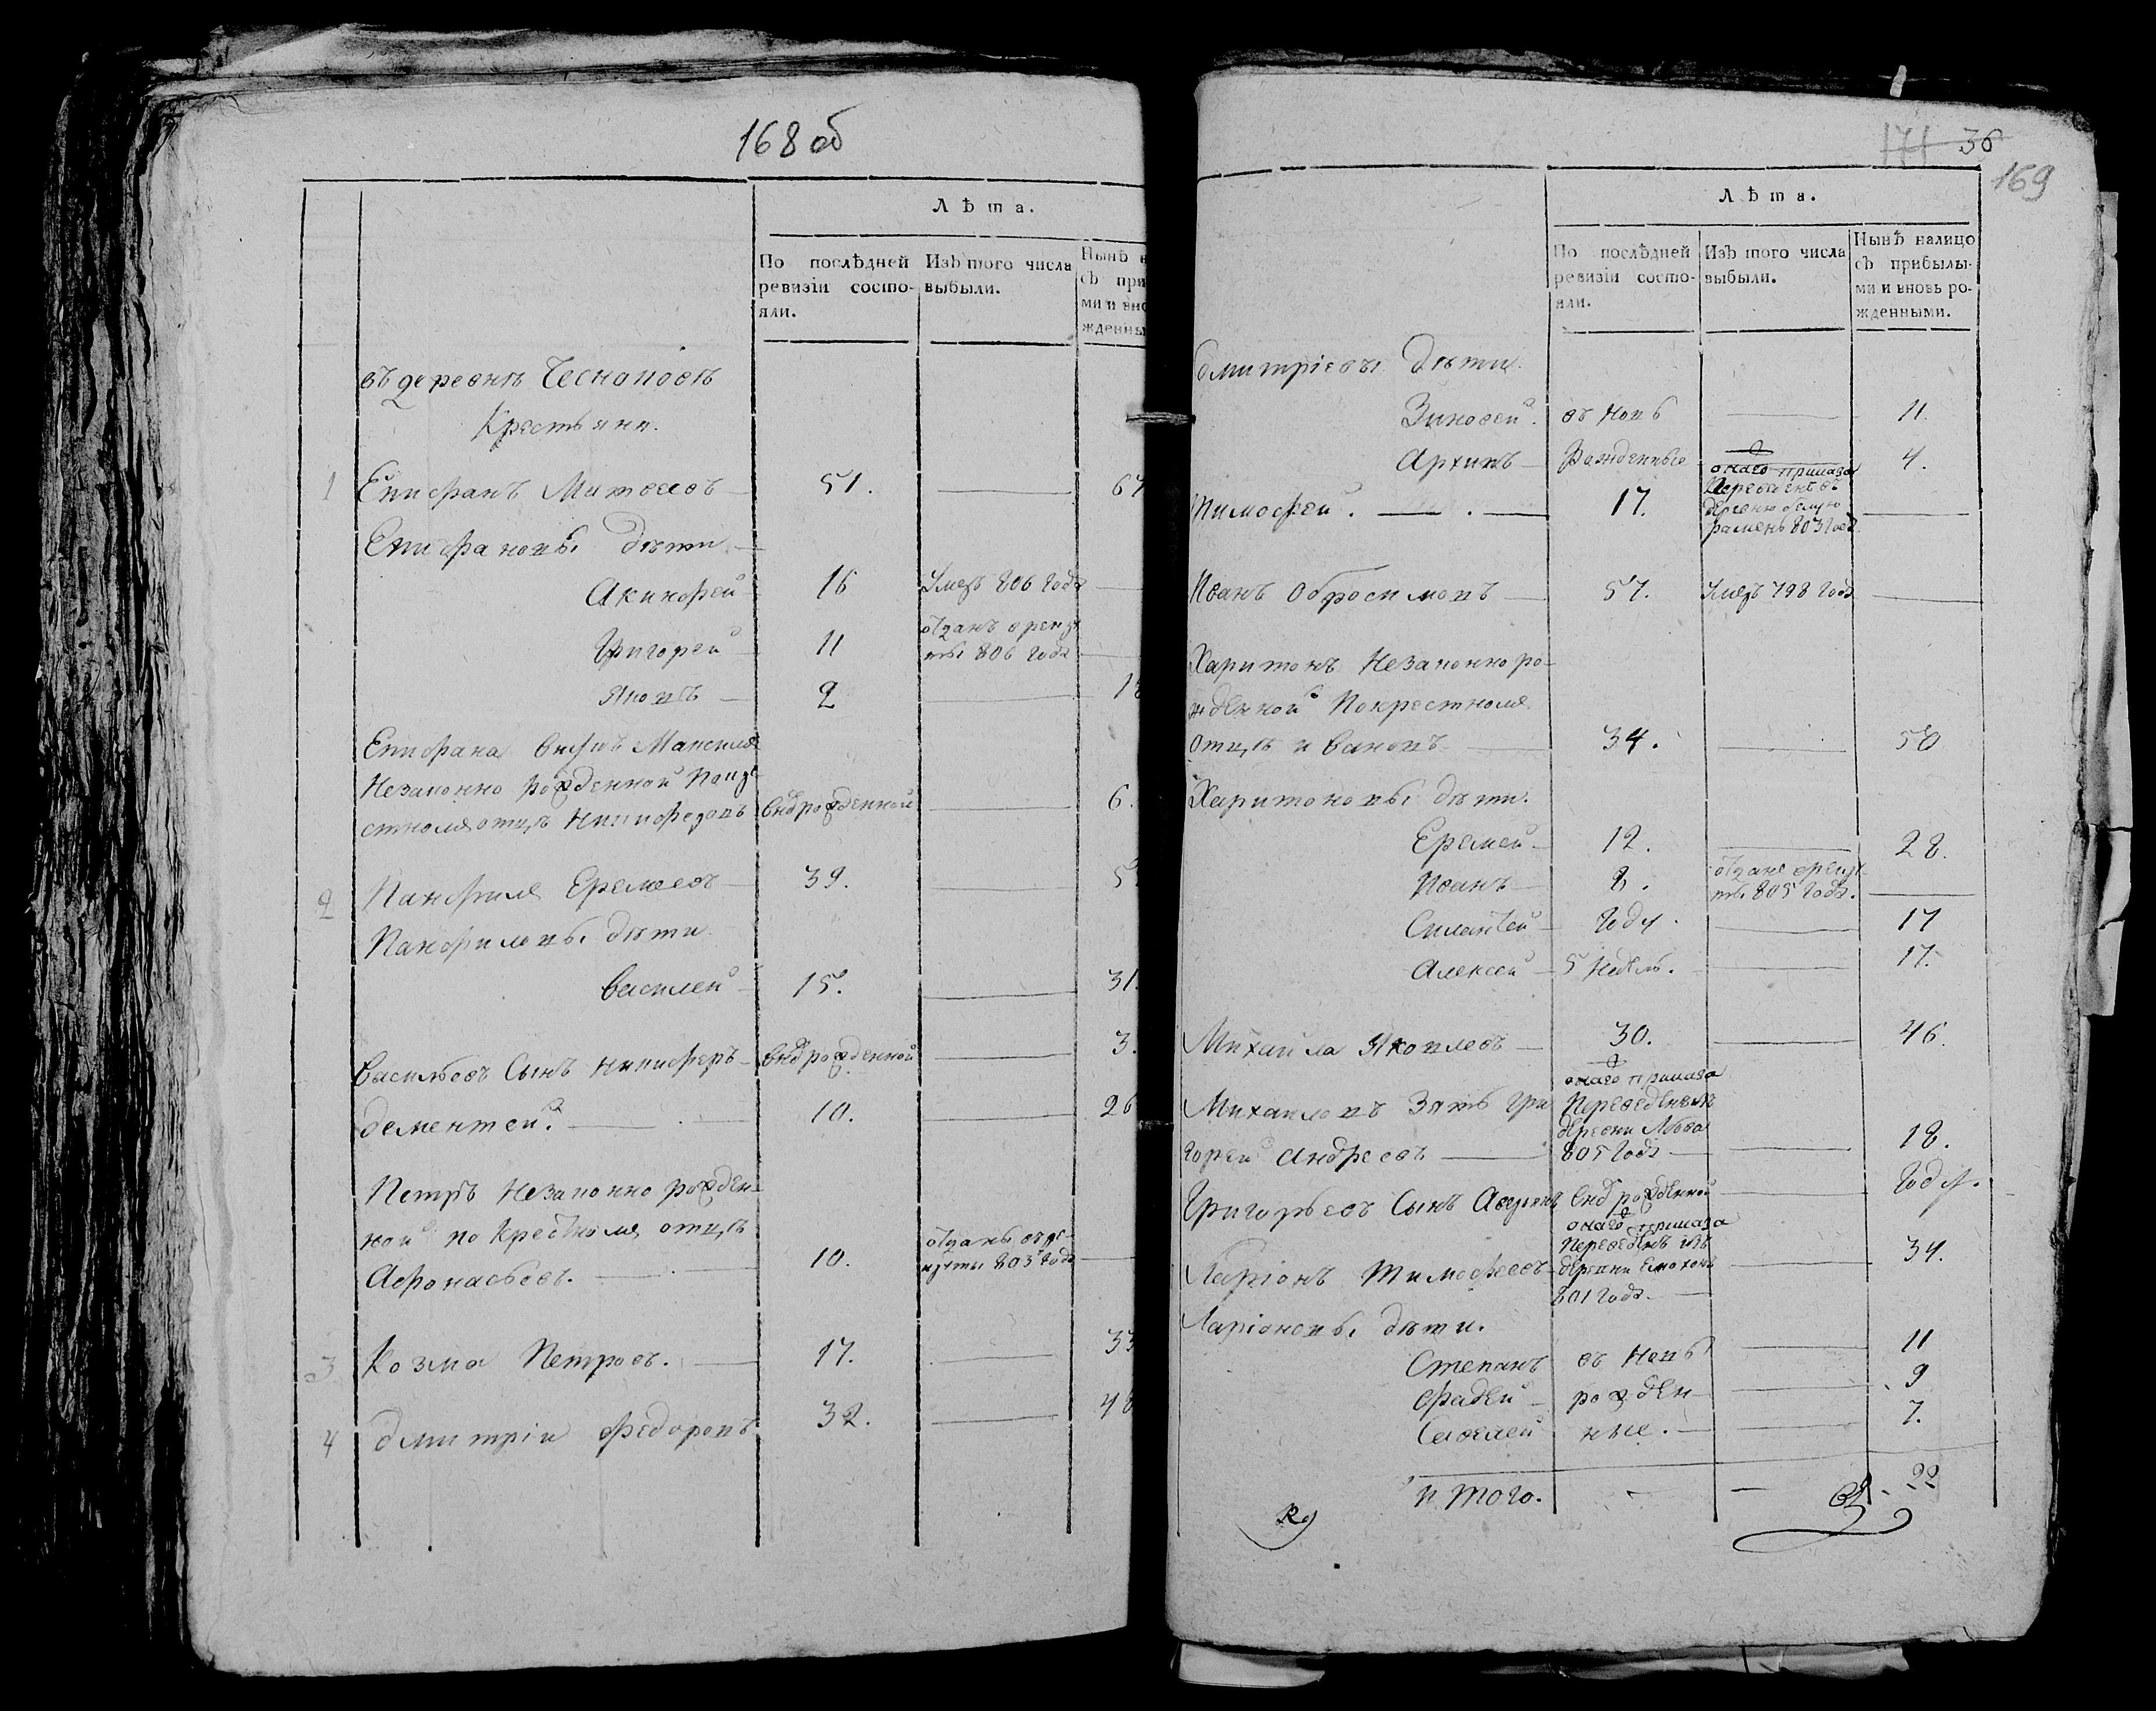 168 об
Лѣта.
По послѣдней ревизіи состо-яли.
Изъ того числа выбыли.
Нынѣ
въ деревнѣ Чесноковѣ
Крестьяня.
1 Епифанъ Матвеевъ 51. — 67
Епифановы дѣти
Акинфей 16 Умеръ 806 года —
Григорей 11 отданъ в рекру
ты 806 года —
Яковъ 2 — 18
Епифана внукъ Максимъ
Незаконно рожденной Покре
стному отцѣ Никифоровъ вновь рожденной — 6.
2 Панфилъ Еремеевъ 39. — 5
Панфиловы дѣти
Василей 15. — 31.
Васильевъ Сынъ Никифоръ вновь рожденной — 3.
Дементей. 10. — 26
Петръ Незаконно рожден-
ной по крестному отцѣ
Афонасьевъ. 10. отданъ въ ре-
круты 803 года —
3 Козма Петровъ. 17. — 33
4 Дмитріи Федоровъ 32. — 48
171 36
169
Лѣта.
По послѣдней ревизіи состо-яли.
Изъ того числа выбыли.
Нынѣ налицо съ прибылы-ми и вновь ро-жденными.
Дмитріевы дѣти
Зиновей. въ новь — 11.
Архипъ Рожденные — 4.
Тимофей. 17. онаго приказа
Переведенъ въ
деревню белую
рамень 803 года —
Иванъ Обросимовъ 57. Умеръ 798 года —
Харитонъ Незаконно ро-
жденной Покрестному
отцѣ Ивановъ 34. — 50
Харитоновы дѣти.
Еремей 12. — 28.
Иванъ 8. отданъ в рекру
ты 805 года. —
Силантей Году. — 17
Алексей 5 недель. — 17.
Михайла Яковлевъ 30. — 46.
Михайловъ Зять Гри
горей Андреевъ онаго приказа
Переведенъ из
деревни
805 года — 18.
Григорьевъ Сынъ вновь рожденной — Году.
Ларіонъ Тимофеевъ онаго приказа
Переведенъ изъ
деревни
801 года — 34.
Ларіоновы дѣти.
Степанъ въ новь — 11
Фадей рожден — 9
Савелей ные. — 7.
Итого. — — 22